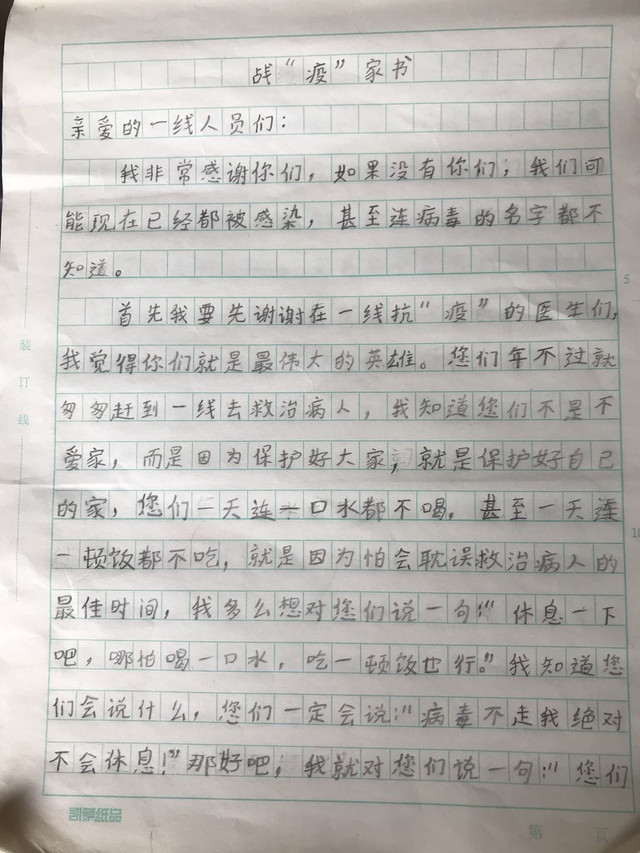 战“疫”家书
亲爱的一线人员们：
我非常感谢你们，如果没有你们；我们可
能现在已经都被感染，甚至连病毒的名字都不
知道。
5
首先我要先谢谢在一线抗“疫”的医生们，
我觉得你们就是最伟大的英雄。您们年不过就
匆匆赶到一线去救治病人，我知道您们不是不
爱家，而是因为保护好大家，就是保护好自己
的家，您们一天连一口水都不喝，甚至一天连
10
一顿饭都不吃，就是因为怕会耽误救治病人的
最佳时间，我多么想对您们说一句：“休息一下
吧，哪怕喝一口水，吃一顿饭也行。”我知道您
们会说什么，您们一定会说：“病毒不走我绝对
不会休息！”那好吧，我就对您们说一句：“您们
装订线
凯萨纸品
第 页